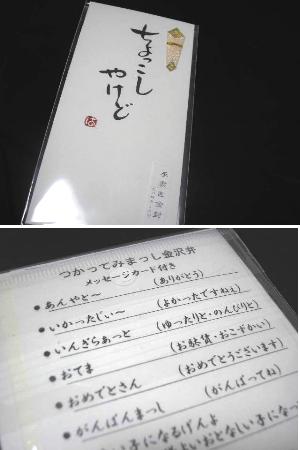 ちょっこし
やけど
つかってみまっし金沢弁
メッセージカード付き
●あんやと〜 (ありがとう)
●いかったじぃ〜 (よかったですねぇ)
●いんぎらぁっと (ゆったりと・のんびりと)
●おてま (お駄賃・おこずかい)
●おめでとさん (おめでとうございます)
●がんばんまっし (がんばってね)
い子になるげんよ